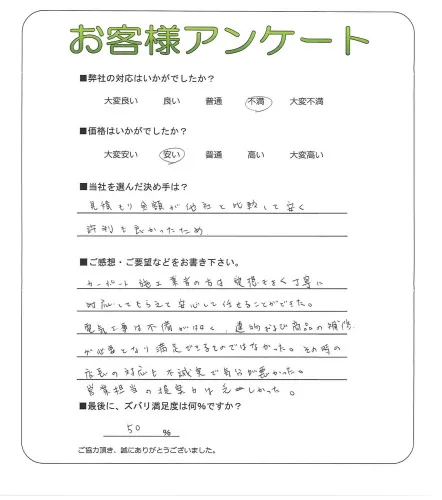 お客様アンケート
■弊社の対応はいかがでしたか?
大変良い 良い 普通 不満 大変不満
■価格はいかがでしたか?
大変安い 安い 普通 高い 大変高い
■当社を選んだ決め手は?
見積もり金額が他社と比較して安く
評判も良かったため
■ご感想・ご要望などをお書き下さい。
カーポート施工業者の方は愛想もよく丁寧に
対応してもらえて安心して任せることができた。
電気工事は不備が 、 および商品の補修
が必要となり満足できるものではなかった。その時の
店長の対応も不誠実で気分が悪かった。
営業担当の提案力は しかった。
■最後に、ズバリ満足度は何%ですか?
50 %
ご協力頂き、誠にありがとうございました。